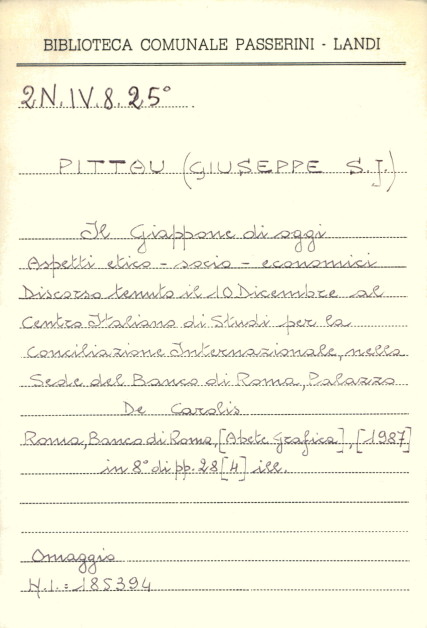 BIBLIOTECA COMUNALE PASSERINI - LANDI
2N.IV.8.25°
PITTAU (GIUSEPPE S.J.)
Il Giappone di oggi
Aspetti etico - socio - economici
Discorso tenuto il 10 Dicembre al
Centro Italiano di Studi per la
Conciliazione Internazionale, nella
Sede del Banco di Roma, Palazzo
De Carolis
Roma, Banco di Roma, [Abete Grafica], [1987]
in 8° di pp. 28 [4] ill.
Omaggio
N.I.: 185394